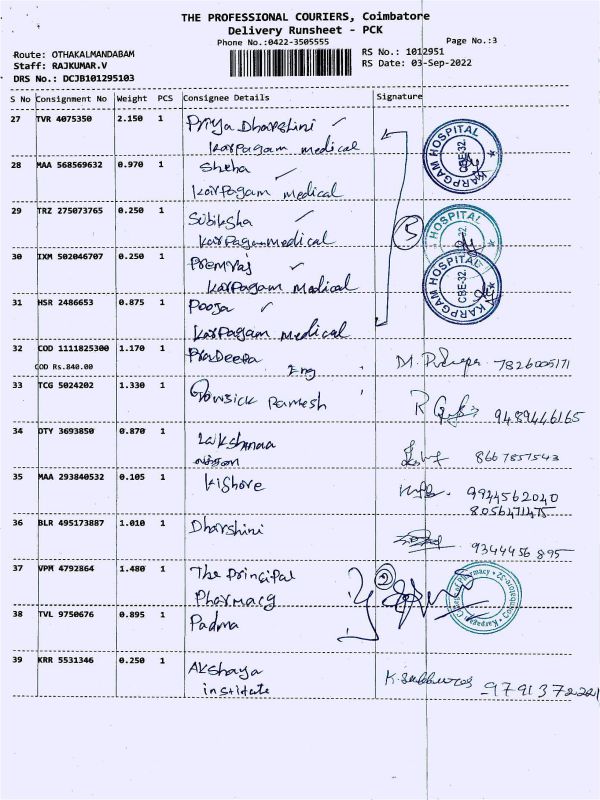 THE PROFESSIONAL COURIERS, Coimbatore
Delivery Runsheet - PCK
Phone No.:0422-3505555
Page No.:3
Route: OTHAKALMANDABAM
RS No.: 1012951
Staff: RAJKUMAR.V
RS Date: 03-Sep-2022
DRS No.: DCJB101295103
S No Consignment No Weight PCS Consignee Details Signature
27 TVR 4075350 2.150 1 Priya Dharshini
Karpagam medical
28 MAA 568569632 0.970 1
Karpagam medical
29 TRZ 275073765 0.250 1 Subiksha
Karpagam medical
30 IXM 502046707 0.250 1 Premraj
Karpagam Medical
31 HSR 2486653 0.875 1 Pooja
Karpagam medical
5
KARPGAM HOSPITAL
CBE-32.
HOSPITAL
CBE-32.
KARPGAM HOSPITAL
CBE-32.
32 COD 1111825300 1.170 1 Pradeepa
COD Rs.840.00 Eng 7826005171
33 TCG 5024202 1.330 1 Gowsick Ramesh 9489446165
34 DTY 3693850 0.870 1 Lakshanaa
8667857543
35 MAA 293840532 0.105 1 Kishore 9944562040
8056471475
36 BLR 495173887 1.010 1 Dharshini
9344456895
37 VPM 4792864 1.480 1 The Principal
Pharmacy
2
Karpagam College of Pharmacy
Coimbatore-32
38 TVL 9750676 0.895 1 Padma
39 KRR 5531346 0.250 1 Akshaya
institute 9791372221